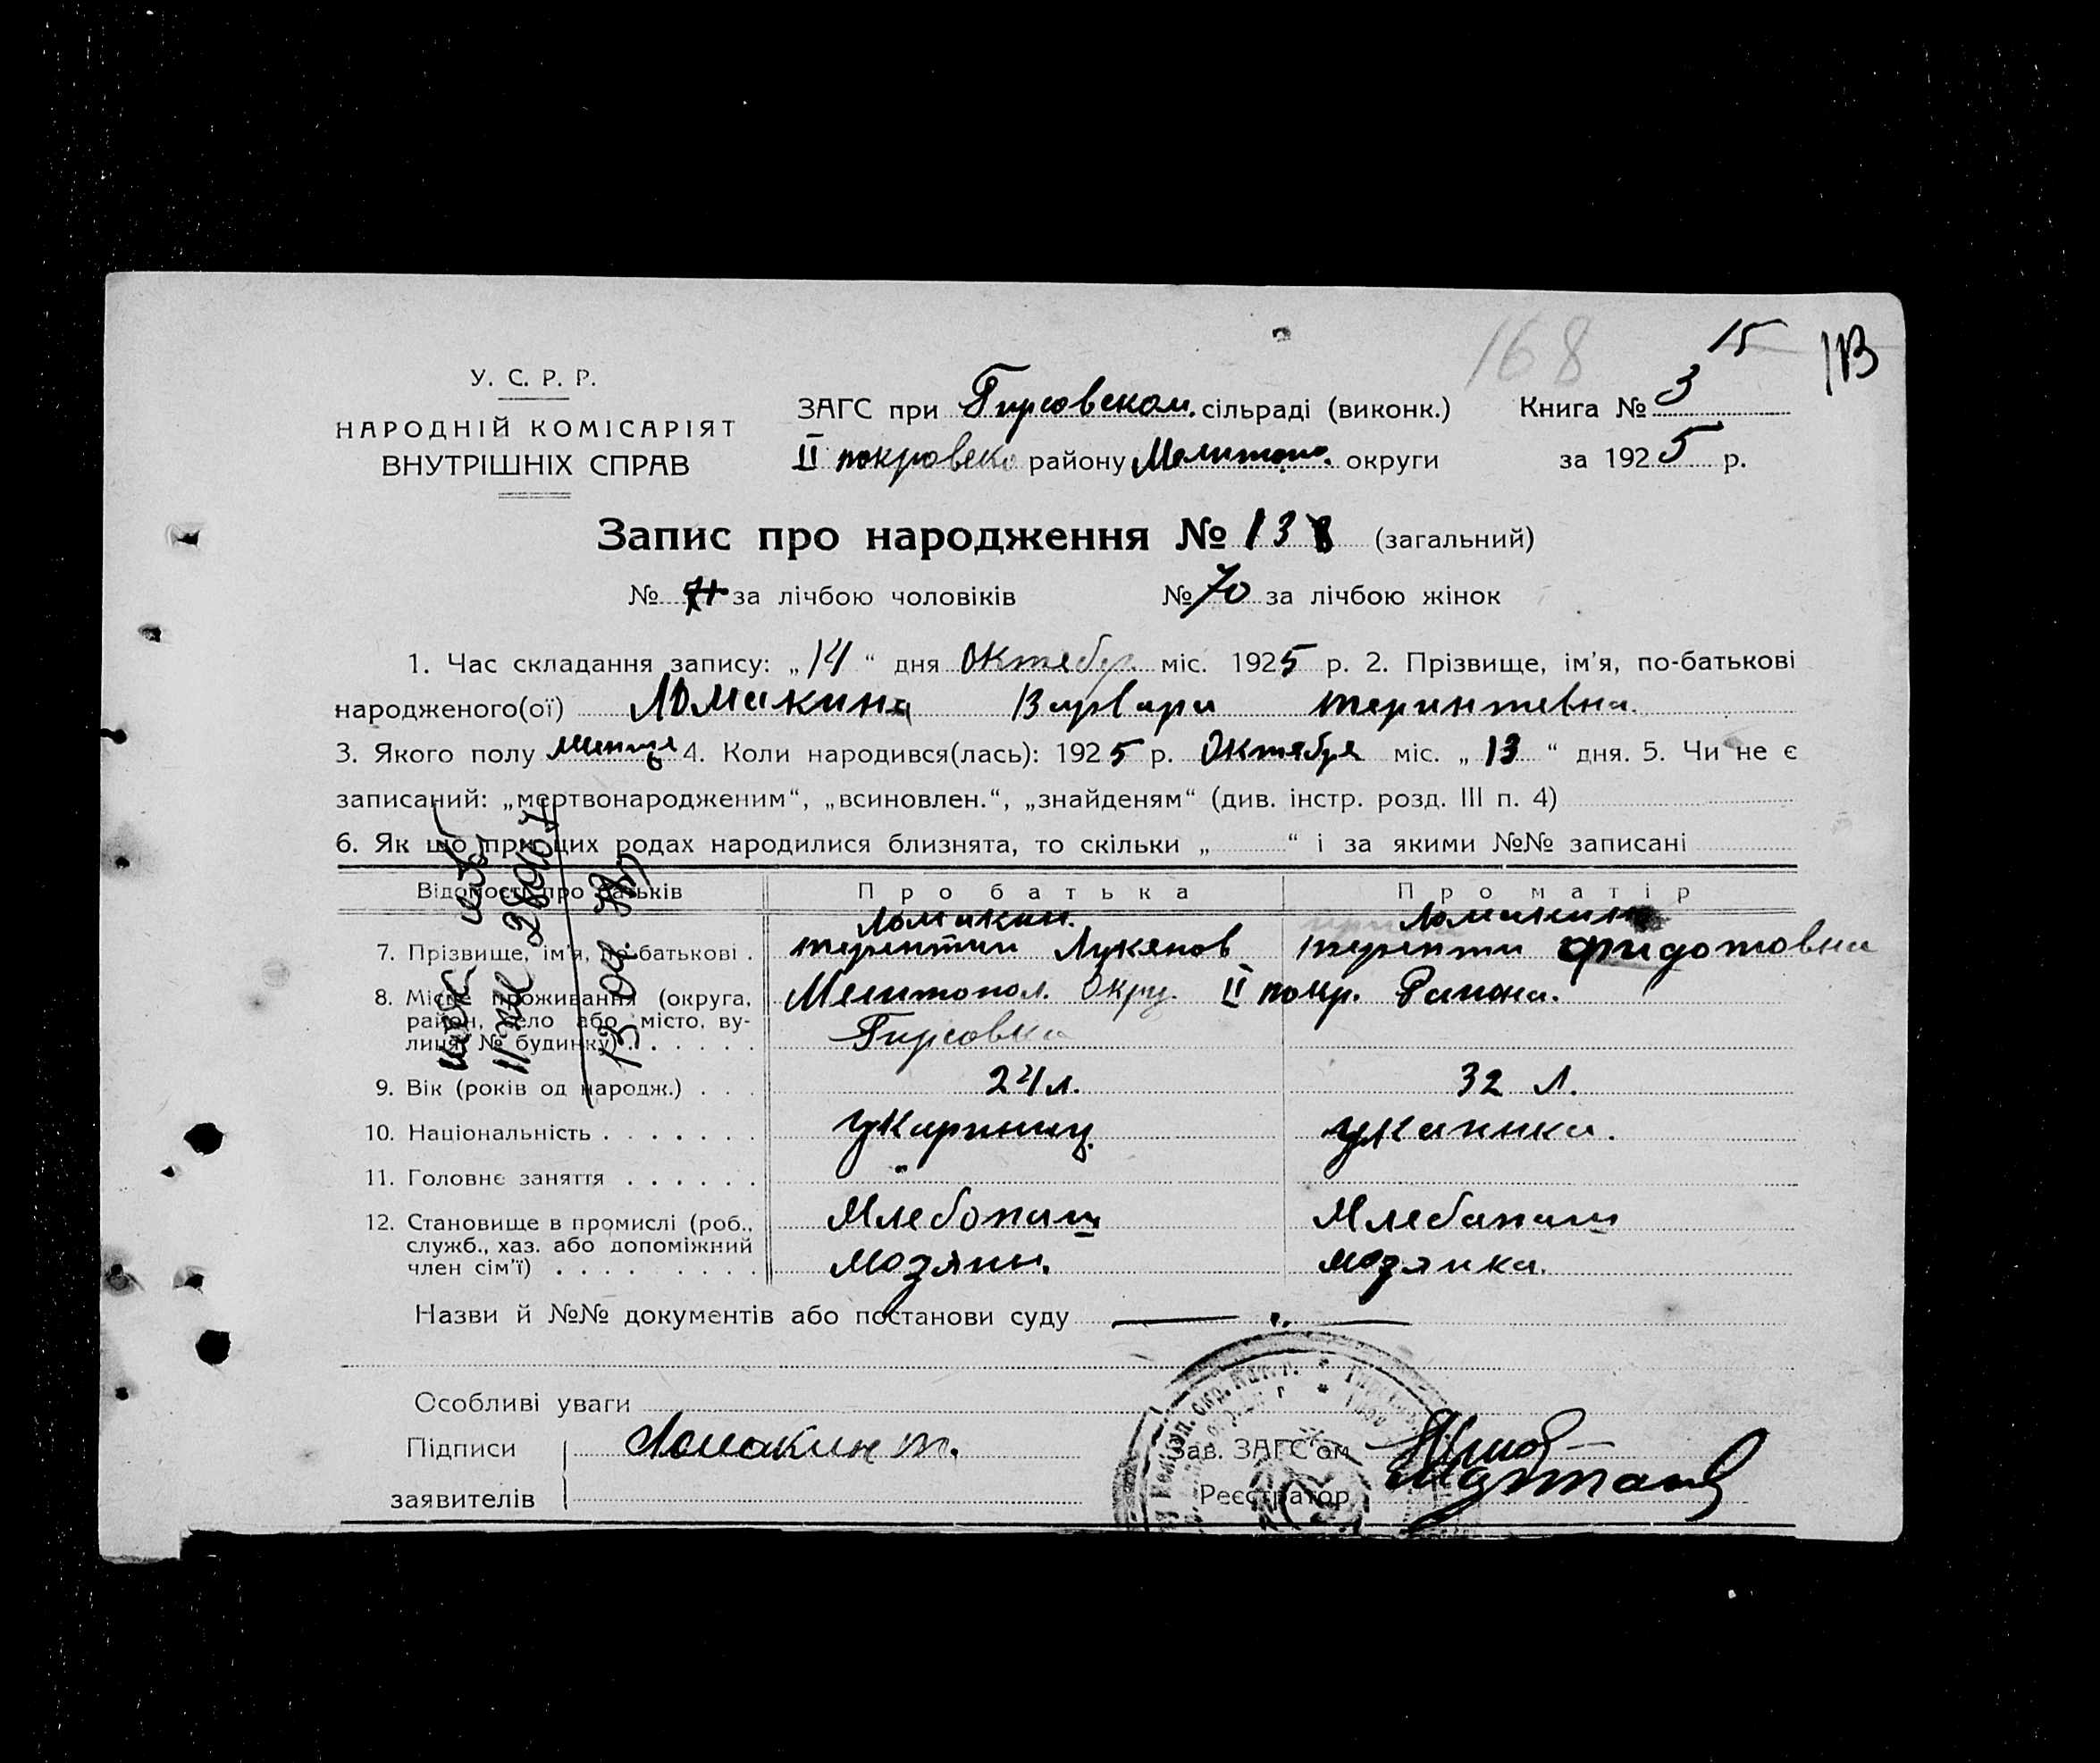 168
15
У. С. Р. Р.
НАРОДНІЙ КОМІСАРІЯТ
ВНУТРІШНІХ СПРАВ
ЗАГС при Гирсовском. сільраді (виконк.) Книга № 3
II покровско району Мелитопо. округи за 1925 р.
Запис про народження № 138 (загальний)
№ за лічбою чоловіків № 70 за лічбою жінок
1. Час складання запису: „14“ дня Октябр міс. 1925 р. 2. Прізвище, ім'я, по-батькові
народженого(ої) Ломакина Варвара теринтевна.
3. Якого полу 4. Коли народився(лась): 1925 р. Октября міс. „13“ дня. 5. Чи не є
записаний: „мертвонародженим“, „всиновлен.“, „знайденям“ (див. інстр. розд. III п. 4)
6. Як що при цих родах народилися близнята, то скільки „ “ і за якими №№ записані
Відомості про батьків Про батька Про матір
Ломакин. Ломакина
7. Прізвище, ім'я, по-батькові . терентии Лукянов фидотовна
8. Місце проживання (округа, Мелитопол. Окру. II покр. Раиона.
район, село або місто, ву-
лиця, № будинку) . . . . . . Гирсовка
9. Вік (років од народж.) . . . 24 л. 32 л.
10. Національність . . . . . . . укариниц.
11. Головнє заняття . . . . . .
12. Становище в промислі (роб., Хлебопаш Хлебапаш
служб., хаз. або допоміжний
член сім'ї) . . . . . . . . хозяин. хозяика.
Назви й №№ документів або постанови суду
Особливі уваги
Підписи Ломакин т. Зав. ЗАГС'ом
заявителів Реєстратор